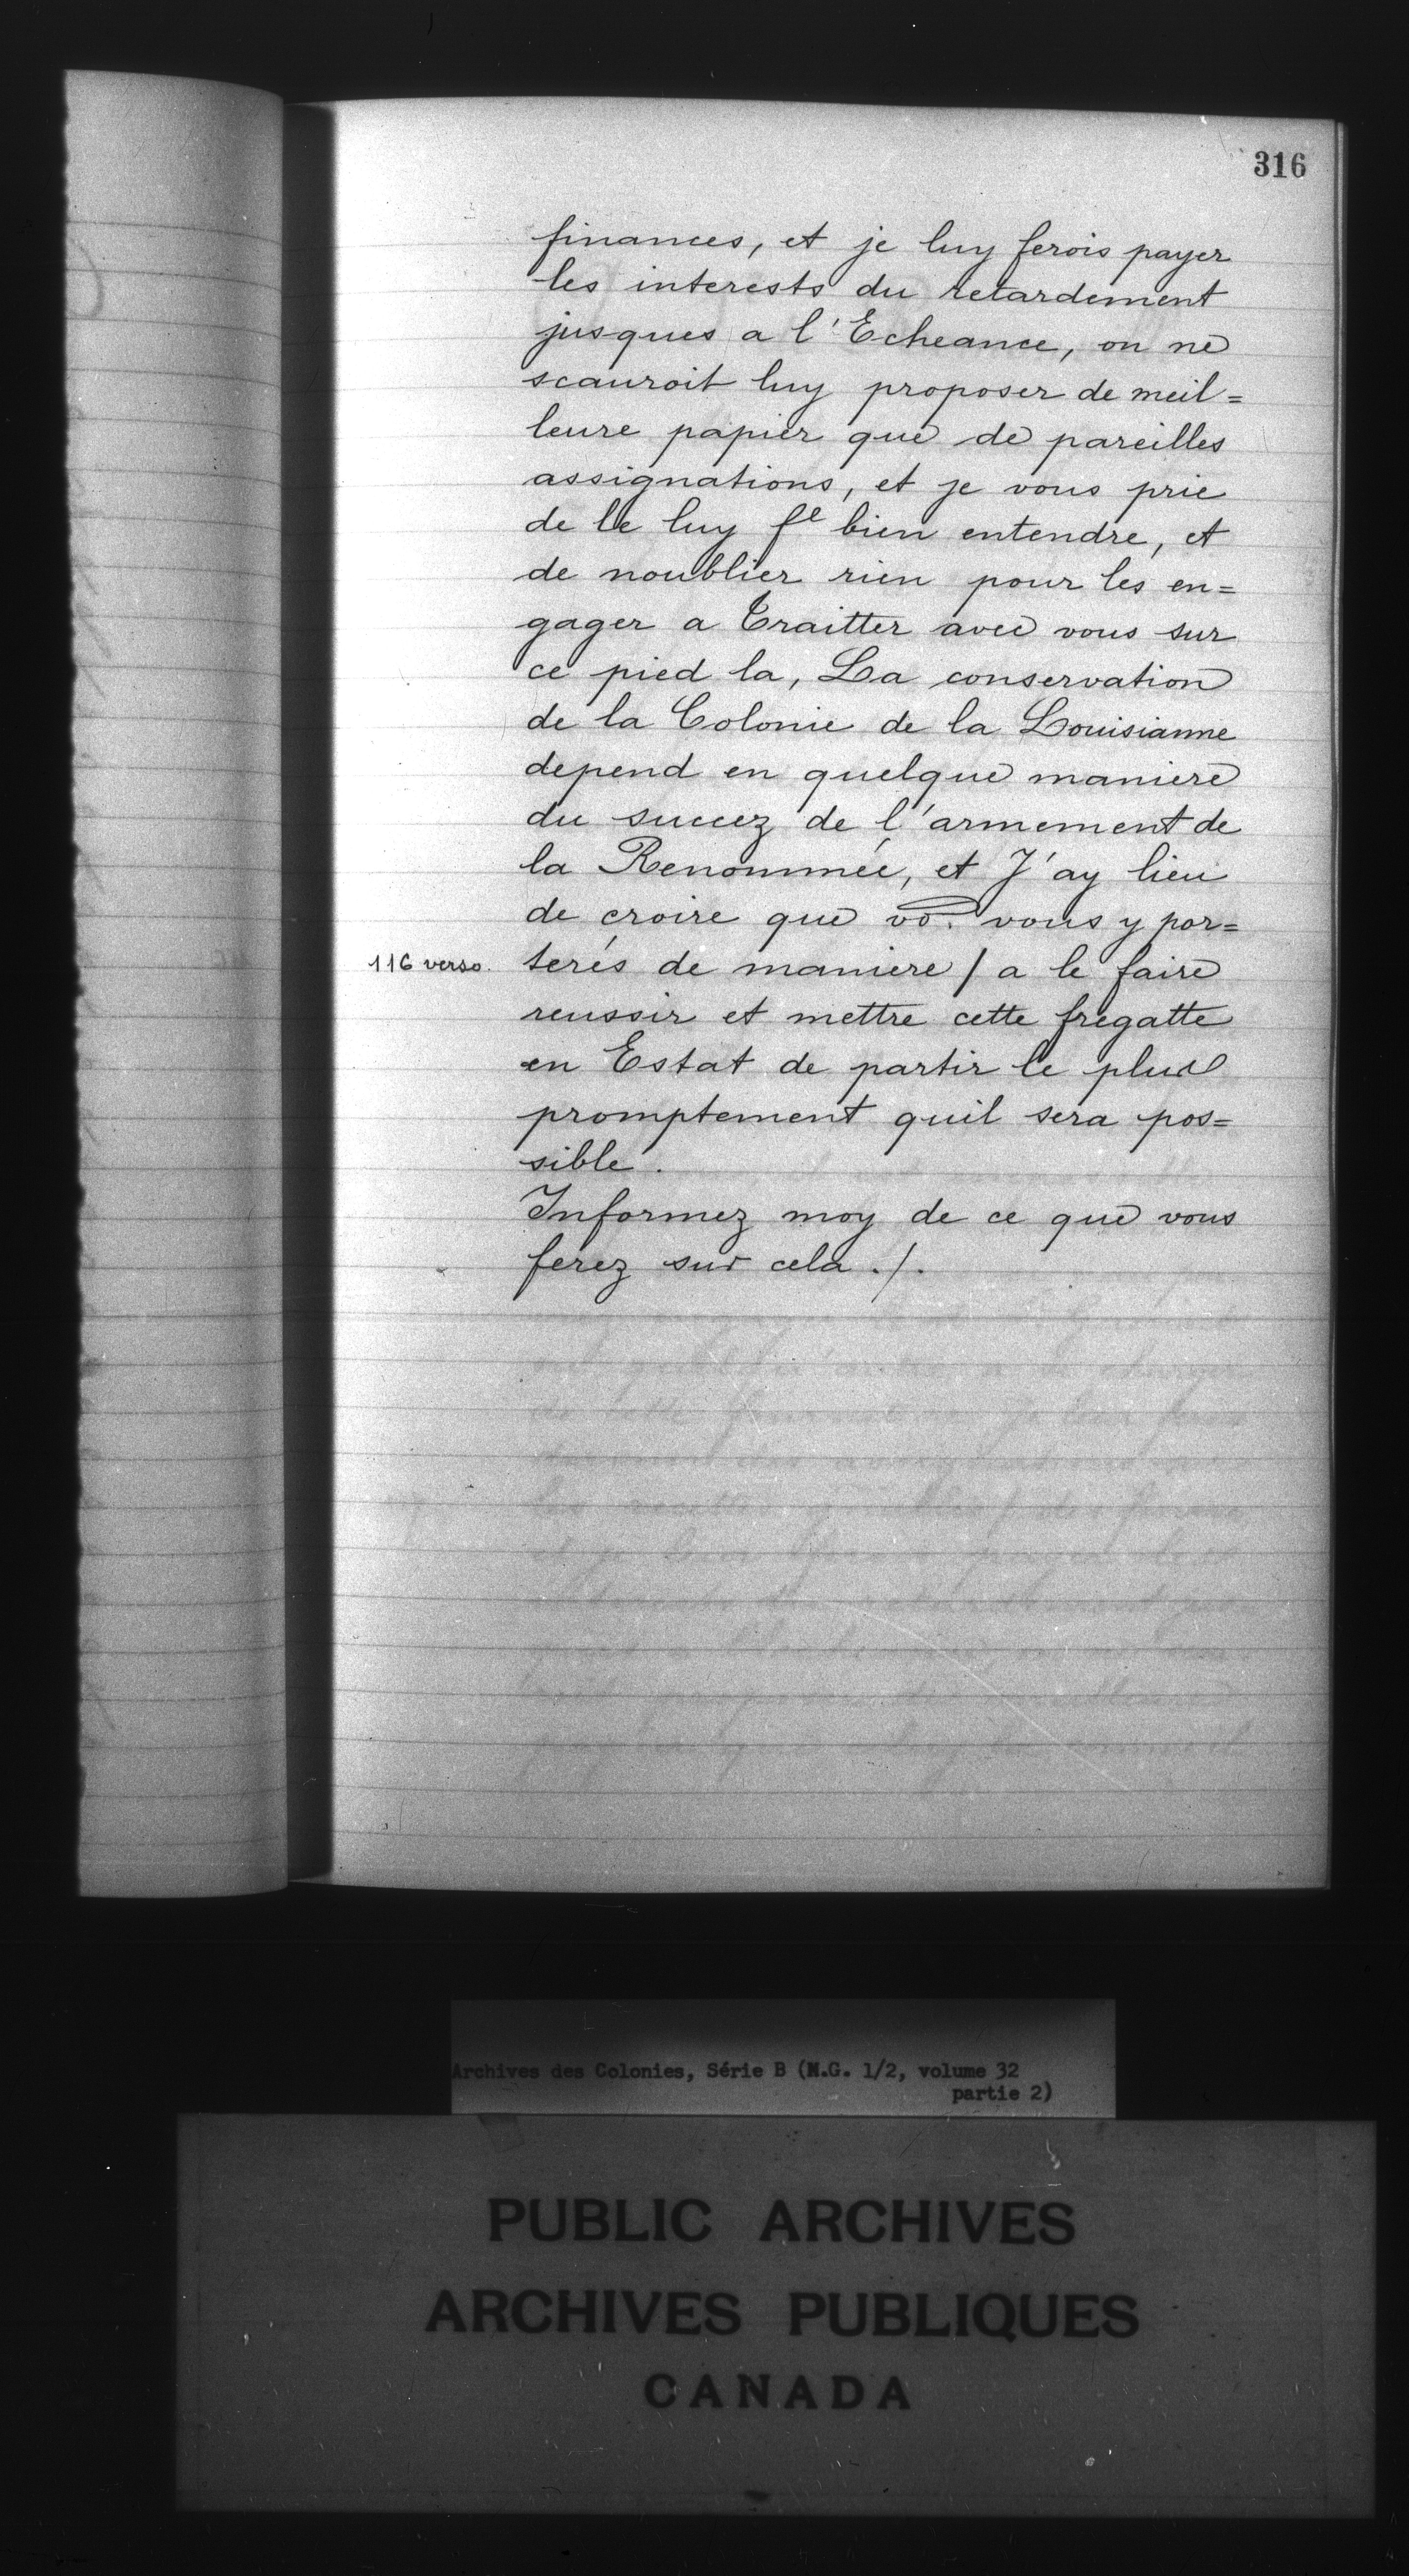 316
finances, et je luy ferois payer
les interests du retardement
jusques a l'Echeance, on ne
scauroit luy proposer de meil=
leure papier que de pareilles
assignations, et je vous prie
de le luy fe bien entendre, et
de noublier rien pour les en=
gager a Traitter avec vous sur
ce pied la, La conservation
de la Colonie de la Louisianne
depend en quelque maniere
du succez de l'armement de
la Renommée, et J'ay lieu
de croire que vo. vous y por=
116 verso. terés de maniere / a le faire
reussir et mettre cette fregatte
en Estat de partir le plus
promptement quil sera pos=
sible.
Informez moy de ce que vous
ferez sur cela ./.
Archives des Colonies, Série B (M.G. 1/2, volume 32
partie 2)
PUBLIC ARCHIVES
ARCHIVES PUBLIQUES
CANADA